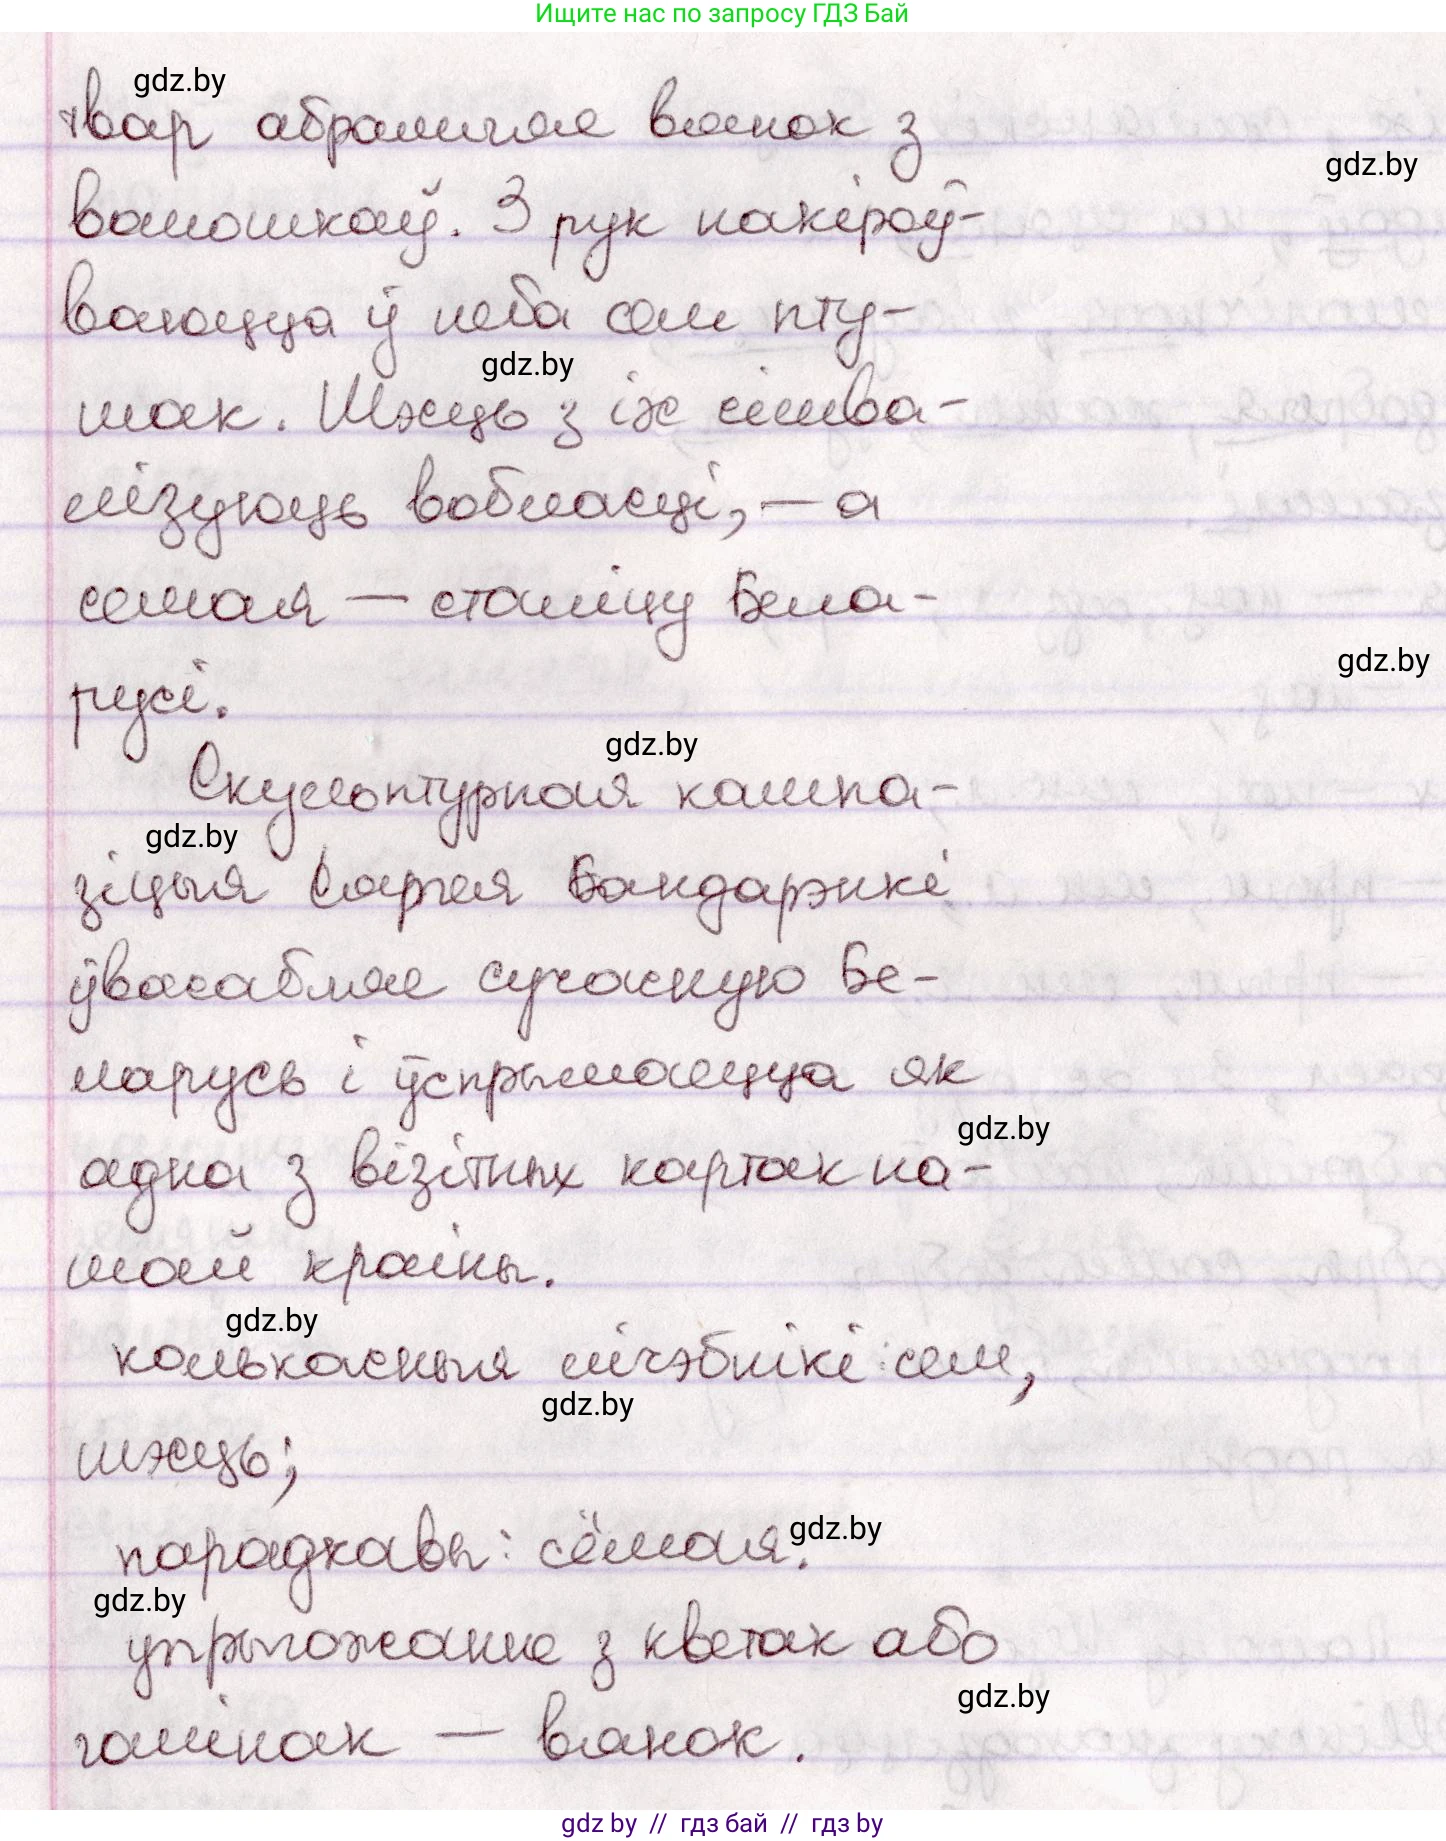 Ищите нас по запросу ГДЗ Бай
gdz.by
твар абрамляе вянок з
gdz.by
валошкаў. З рук накіроў-
ваюцца ў неба сем пту-
gdz.by
шак. Шэсць з іх сімва-
лізуюць вобласці, — а
семая — сталіцу Бела-
gdz.by
русі.
gdz.by
Скульптурная кампа-
gdz.by
зіцыя Сяргея Бандарэнкі
ўвасабляе сучасную Бе-
ларусь і ўспрымаецца як
gdz.by
адна з візітных картак на-
шай краіны.
gdz.by
колькасныя лічэбнікі: сем,
gdz.by
шэсць;
парадкавы: сёмая.
gdz.by
gdz.by
упрыгожанне з кветак або
gdz.by
галінак — вянок.
gdz by // гдз бай // гдз by